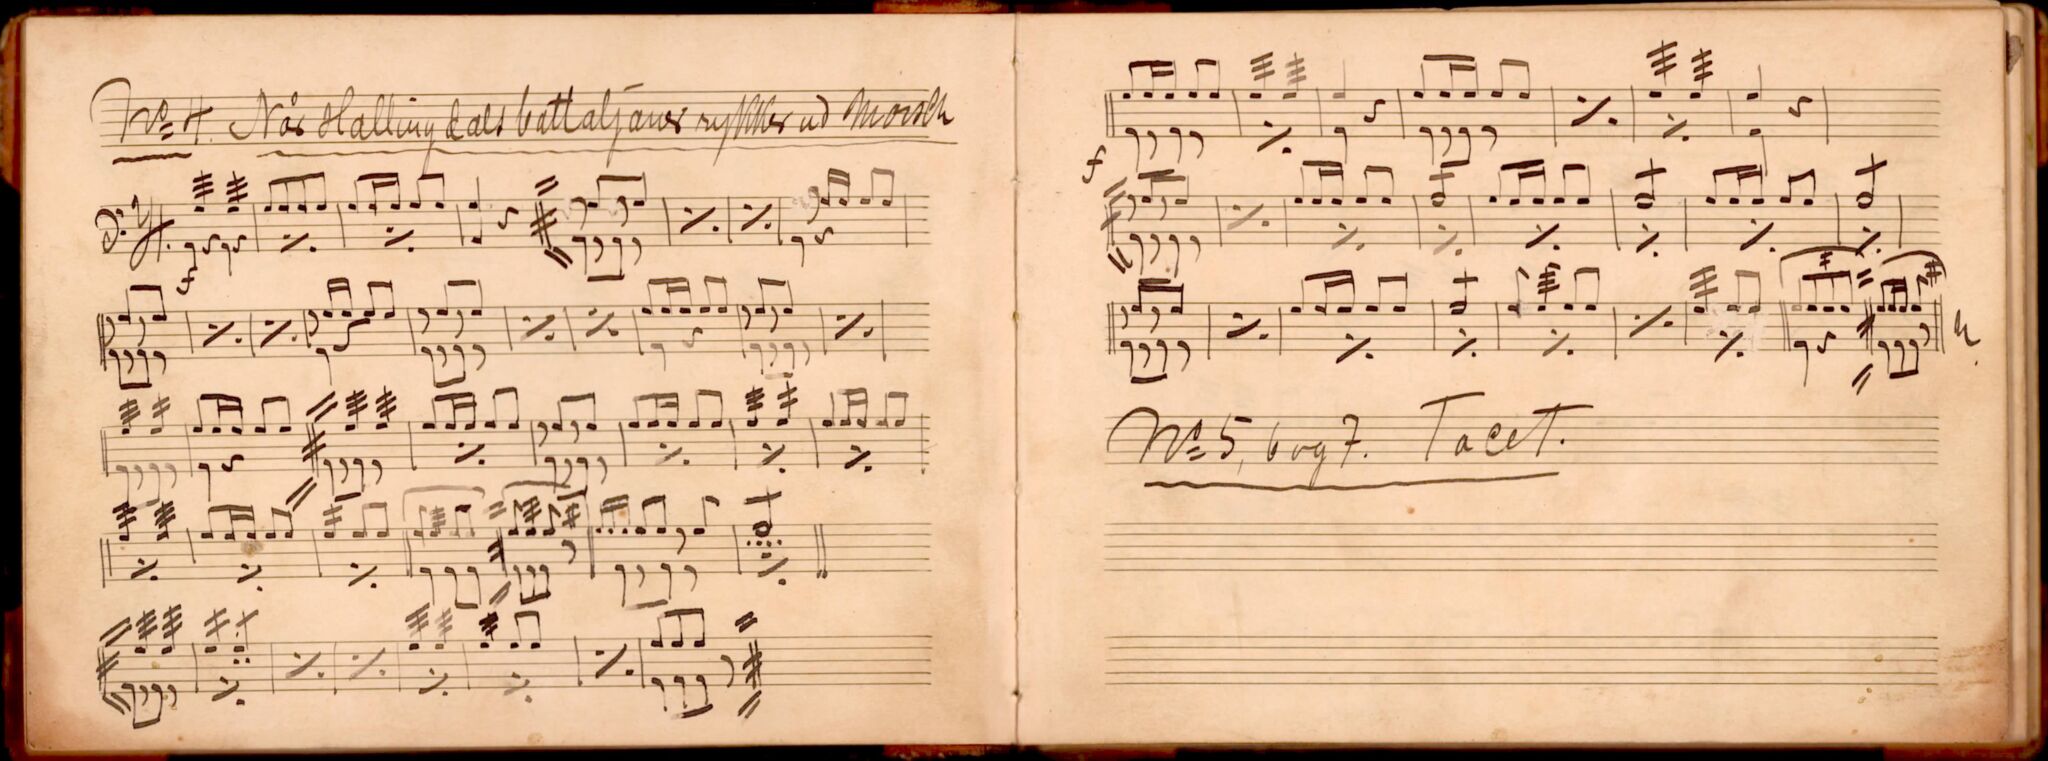 No 4. Når Hallingdals battaljaner rykker ud Marsch
f
f
No 5, 6 og 7. Tacet.